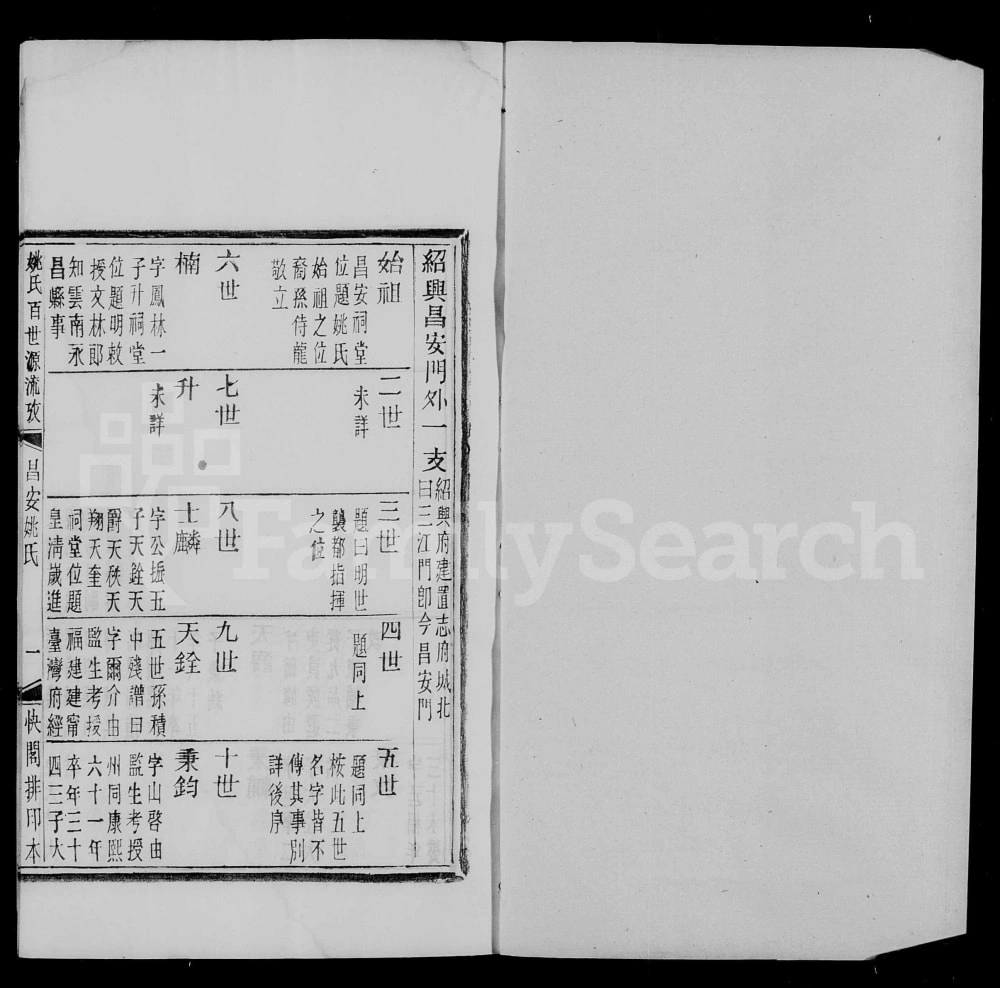 紹興昌安門外一支
紹興府建置志府城北
曰三江門卽今昌安門
始祖
昌安祠堂
位題姚氏
始祖之位
裔孫待龍
敬立
二世
未詳
三世
題曰明世
襲都指揮
之位
四世
題同上
五世
題同上
桉此五世
名字皆不
傳其事別
詳後序
六世
楠
字鳳林一
子升祠堂
位題明敕
授文林郎
知雲南永
昌縣事
七世
升
未詳
八世
士麟
字公振五
子天銓天
爵天秩天
翔天奎
祠堂位題
皇清歲進
九世
天銓
五世孫積
中殘譜曰
字爾介由
監生考授
福建建甯
臺灣府經
十世
秉鈞
字山啓由
監生考授
州同康熙
六十一年
卒年三十
四三子大
姚氏百世源流攷
昌安姚氏
一
快閣排印本
FamilySearch